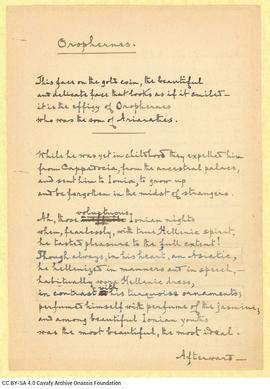 Orophernes.
This face on the gold coin, the beautiful
and delicate face that looks as if it smiled—
it is the effigy of Orophernes
who was the son of Ariarathes.
While he was yet in childhood they expelled him
from Cappadocia, from the ancestral palace,
and sent him to Ionia, to grow up
and be forgotten in the midst of strangers.
voluptuous
Ah, those Ionian nights
when, fearlessly, with true Hellenic spirit,
he tasted pleasure to the full extent!
Though always, in his heart, an Asiatic,
he hellenized in manners and in speech,—
habitually wore Hellenic dress,
in contrast with his turquoise ornaments;
perfumed himself with perfume of the jasmine;
and among beautiful Ionian youths
was the most beautiful, the most ideal.
Afterward—
CC BY-SA 4.0 Cavafy Archive Onassis Foundation